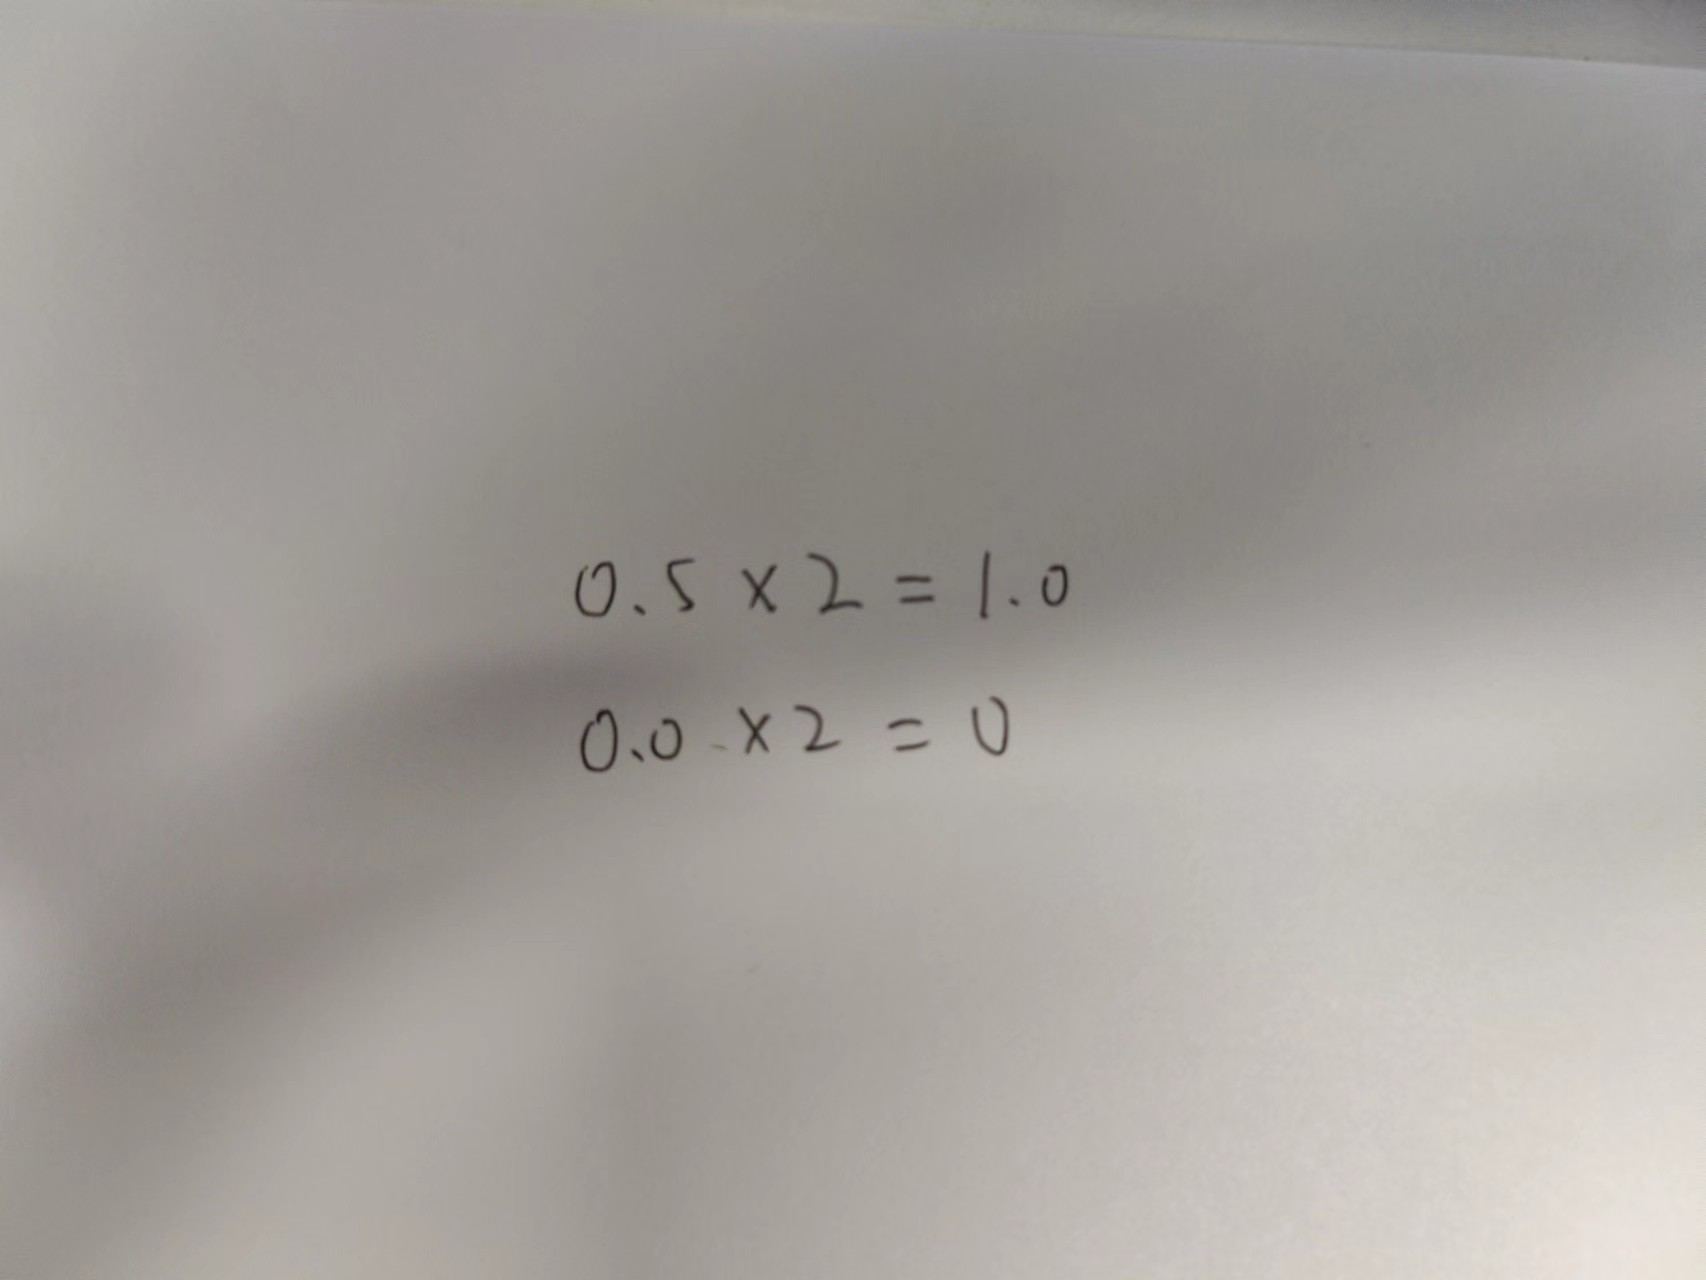 0.5 × 2 = 1.0
0.0 × 2 = 0